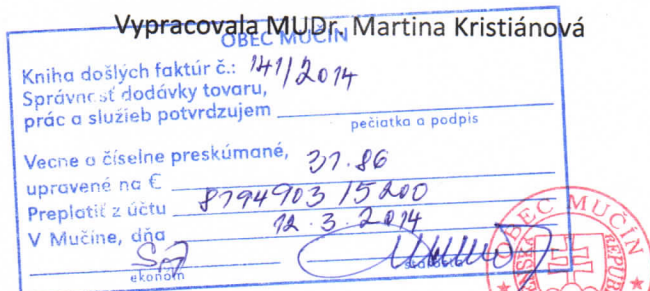 Vypracovala MUDr. Martina Kristiánová
OBEC MUČÍN
Kniha došlých faktúr č.: 141/2014
Správnosť dodávky tovaru,
prác a služieb potvrdzujem
pečiatka a podpis
Vecne a číselne preskúmané,
upravené na € 37.86
Preplatiť z účtu 8794903/5200
V Mučíne, dňa 12.3.2014
ekonóm
OBEC MUČÍN